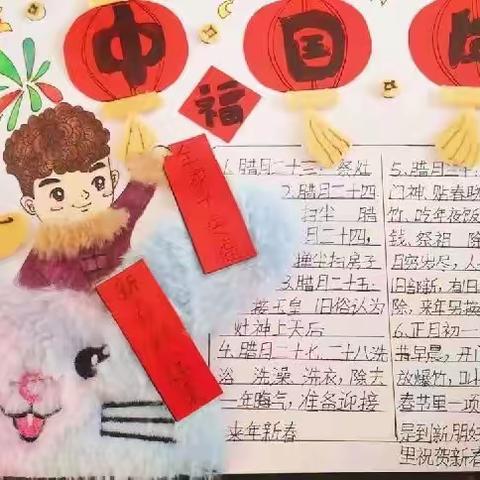 中国年
福
1.腊月二十三：祭灶
2.腊月二十四
扫尘 腊
月二十四，
掸尘扫房子
3.腊月二十五：
接玉皇 旧俗认为
灶神上天后
4.腊月二十七、二十八洗
浴 洗澡、洗衣，除去
一年晦气，准备迎接
来年新春
5.腊月三十
门神、贴春
竹、吃年夜饭
钱、祭祖
除，来年另换
6.正月初一
早晨，开门
放爆竹，叫
春节里一项
是到新朋好
里祝贺新春